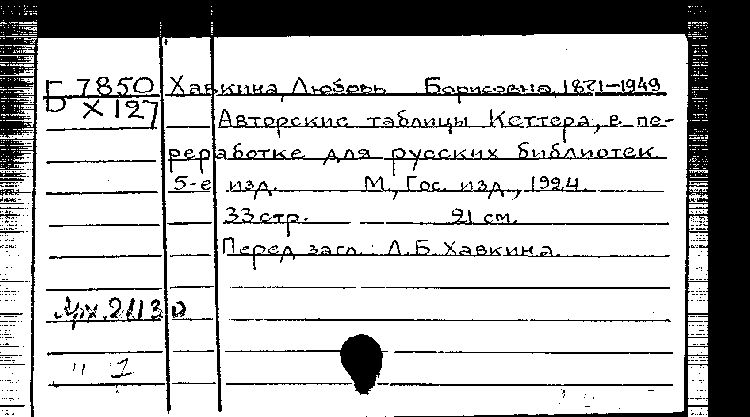 Б 7850 Хавкина, Любовь Борисовна, 1871-1949
Х 127 Авторские таблицы Кеттера, в пе-
реработке для русских библиотек
5-е изд. М., Гос. изд., 1924.
33 стр. 21 см.
Перед загл.: Л.Б. Хавкина.